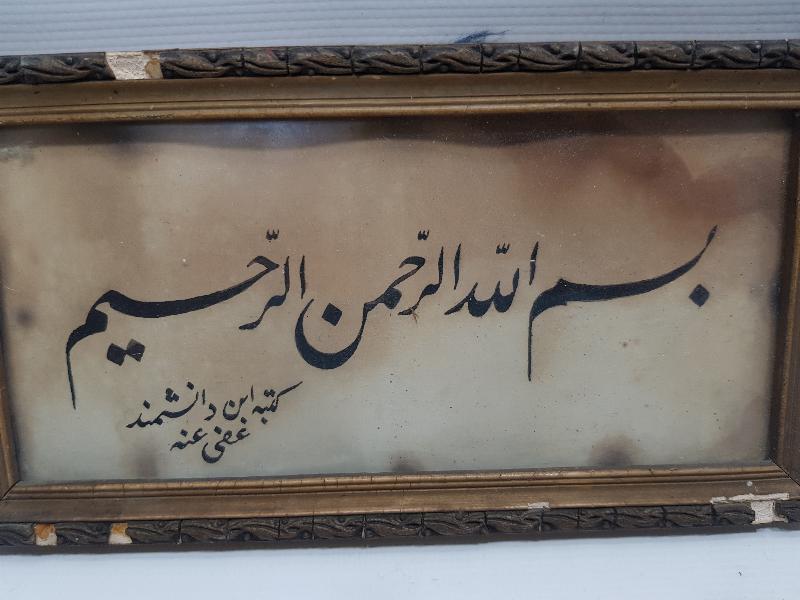 بسم اللّه الرّحمن الرّحيم
كتبه ابن دانشمند
غفي عنه